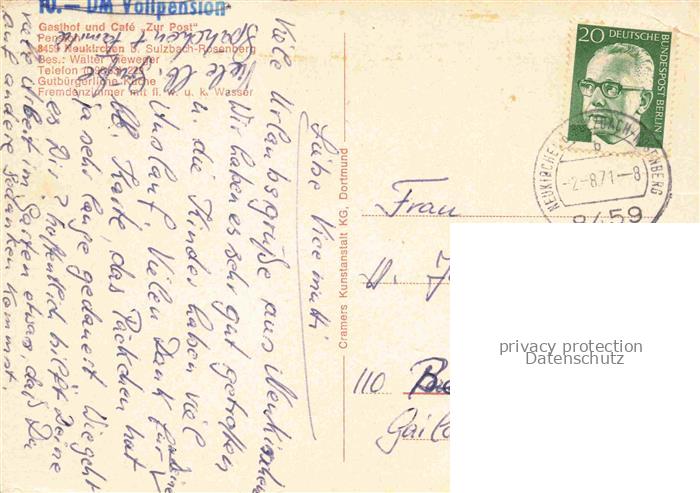 10.— DM Vollpension
Gasthof und Café „Zur Post"
8459 Neukirchen b. Sulzbach-Rosenberg
Bes.: Walter Vieweger
Telefon
Gutbürgerliche Küche
Fremdenzimmer mit fl. w. u. k. Wasser
Cramers Kunstanstalt KG, Dortmund
20 DEUTSCHE BUNDESPOST BERLIN
-2-8.71-8
8459
Liebe
Viele Urlaubsgrüße aus Neukirchen
Wir haben es sehr gut getroffen
u. die Kinder haben viel
Auslauf. Vielen Dank für
Karte, das Päckchen hat
ja sehr lange gedauert. Wie geht
es Dir? Hoffentlich hilft Deine
viele Arbeit im Garten etwas, daß Du
auf andere Gedanken kommst.
Viele lb.
Frau
110
privacy protection
Datenschutz